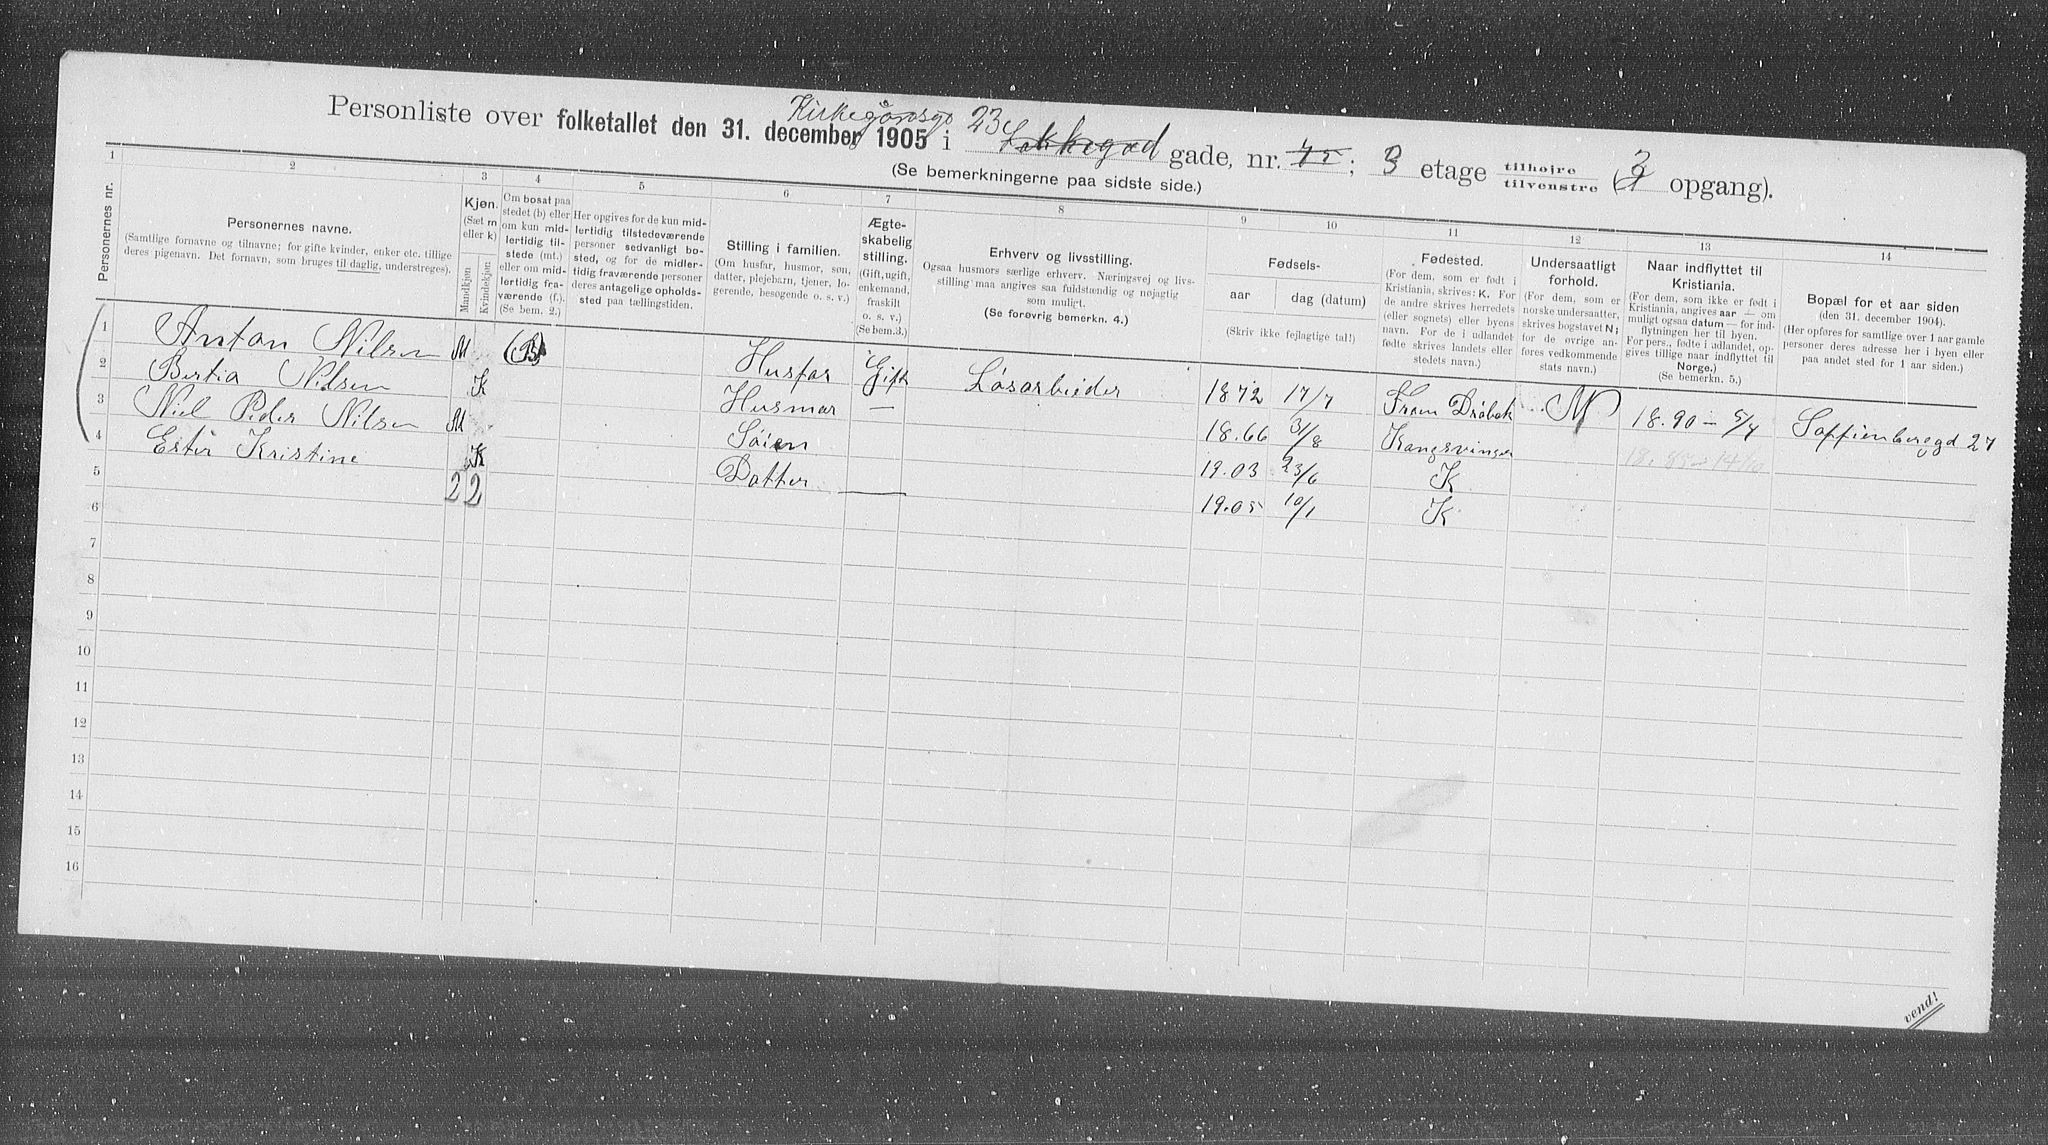 Personliste over folketallet den 31. december 1905 i Kirkegårdsgd 23 gade, nr. ; 3 etage tilhøjre tilvenstre (2 opgang).
(Se bemerkningerne paa sidste side.)
1 2 3 4 5 6 7 8 9 10 11 12 13 14
Personernes nr.
Personernes navne.
(Samtlige fornavne og tilnavne; for gifte kvinder, enker etc. tillige deres pigenavn. Det fornavn, som bruges til daglig, understreges).
Kjøn.
(Sæt m eller k)
Mandkjøn
Kvindekjøn.
Om bosat paa stedet (b) eller om kun midlertidig tilstede (mt.) eller om midlertidig fraværende (f.). (Se bem. 2.)
Her opgives for de kun midlertidig tilstedeværende personer sedvanligt bosted, og for de midlertidig fraværende personer deres antagelige opholdssted paa tællingstiden.
Stilling i familien.
(Om husfar, husmor, søn, datter, plejebarn, tjener, logerende, besøgende o. s. v.)
Ægteskabelig stilling.
(Gift, ugift, enkemand, fraskilt o. s. v.)
(Se bem. 3.)
Erhverv og livsstilling.
Ogsaa husmors særlige erhverv. Næringsvej og livsstilling maa angives saa fuldstændig og nøjagtig som muligt.
(Se forøvrig bemerkn. 4.)
Fødsels-
aar
dag (datum)
(Skriv ikke fejlagtige tal!)
Fødested.
(For dem, som er født i Kristiania, skrives: K. For de andre skrives herredets (eller sognets) eller byens navn. For de i udlandet fødte skrives landets eller stedets navn.)
Undersaatligt forhold.
(For dem, som er norske undersaatter, skrives bogstavet N; for de øvrige anføres vedkommende stats navn.)
Naar indflyttet til Kristiania.
(For dem, som ikke er født i Kristiania, angives aar — om muligt ogsaa datum — for indflytningen her til byen. For pers., fødte i udlandet, opgives tillige naar indflyttet til Norge.)
(Se bemerkn. 5.)
Bopæl for et aar siden
(den 31. december 1904).
(Her opføres for samtlige over 1 aar gamle personer deres adresse her i byen eller paa andet sted for 1 aar siden.)
1 Anton Nilsen M (B) Husfar Gift Løsarbieder 1872 17/7 From Drøbak N 18.90 – 5/4 Soffienberegd 27
2 Bertia Nilsen K Husmor — 18.66 31/8 Kongsvinger
3 Niel Peder Nilsen M Søien 19.03 23/6 K
4 Ester Kristine K Datter — 19.05 10/1 K
5 2 2
6
7
8
9
10
11
12
13
14
15
16
vend!